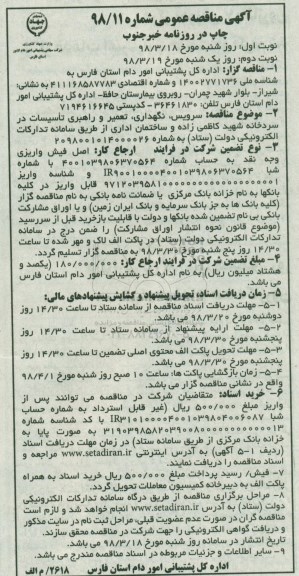 آگهی مناقصه عمومی شماره ۹۸/۱۱
چاپ در روزنامه خبرجنوب
نوبت اول: روز شنبه مورخ ۹۸/۳/۱۸
نوبت دوم: روز یک شنبه مورخ ۹۸/۳/۱۹
۱- مناقصه گزار: اداره کل پشتیبانی امور دام استان فارس به
شناسه ملی ۱۴۰۰۲۷۱۷۳۶ و شماره اقتصادی ۴۱۱۱۶۸۵۸۷۷۸۳ به نشانی:
شیراز- بلوار شهید چمران- روبروی بیمارستان حافظ- اداره کل پشتیبانی امور
دام استان فارس تلفن: ۳۶۴۶۱۸۳۰ - کدپستی ۷۱۹۴۶۱۶۶۴۵
۲- موضوع مناقصه: سرویس، نگهداری، تعمیر و راهبری تأسیسات در
سردخانه شهید کاظمی زاده و ساختمان اداری از طریق سامانه تدارکات
الکترونیکی دولت (ستاد) به شماره
۳- نوع تضمین شرکت در فرایند ارجاع کار: اصل فیش واریزی
وجه نقد به حساب شماره
شبا و شناسه واریز
قابل واریز در کلیه
بانکها به نام خزانه بانک مرکزی یا ضمانت نامه بانکی به نام مناقصه گزار
(کلیه بانک ها به جز بانک سرمایه و بانک ایران زمین) و یا اوراق مشارکت
بانکی بی نام تضمین شده بانکها و دولت با قابلیت بازخرید قبل از سررسید
(موضوع قانون نحوه انتشار اوراق مشارکت) را ضمن درج در سامانه
تدارکات الکترونیکی دولت (ستاد) در پاکت الف لاک و مهر شده تا ساعت
۱۴/۳۰ روز پنج شنبه مورخ ۹۸/۳/۳۰ به مناقصه گزار تسلیم گردد.
۴- مبلغ تضمین شرکت در فرایند ارجاع کار: ۱۸۰/۰۰۰/۰۰۰ (یکصد و
هشتاد میلیون ریال) به نام اداره کل پشتیبانی امور دام استان فارس
می باشد.
۵- زمان دریافت اسناد، تحویل پیشنهاد و گشایش پیشنهادهای مالی:
۵-۱- مهلت دریافت اسناد مناقصه از سامانه ستاد تا ساعت ۱۴/۳۰ روز
دوشنبه مورخ ۹۸/۳/۲۰ می باشد.
۵-۲- مهلت ارایه پیشنهاد از سامانه ستاد تا ساعت ۱۴/۳۰ روز
پنجشنبه مورخ ۹۸/۳/۳۰ می باشد.
۵-۳- مهلت تحویل پاکت الف محتوی اصلی تضمین تا ساعت ۱۴/۳۰ روز
پنجشنبه مورخ ۹۸/۳/۳۰ می باشد.
۵-۴- زمان بازگشایی پاکت ها: ساعت ۱۰ صبح روز شنبه مورخ ۹۸/۴/۱
واقع در نشانی مناقصه گزار می باشد.
۶- خرید اسناد: متقاضیان شرکت در مناقصه می توانند پس از
واریز مبلغ ۵۰۰/۰۰۰ ریال (غیر قابل استرداد به شماره حساب
شبا با کد شناسه شماره
به صورت پایا به
خزانه بانک مرکزی از طریق سامانه ستاد) در زمان مهلت دریافت اسناد
(ردیف ۵-۱ آگهی) به آدرس اینترنتی www.setadiran.ir مراجعه و
اسناد مناقصه را دریافت نمایند.
۷- فیش/ رسید پرداخت مبلغ ۵۰۰/۰۰۰ ریال خرید اسناد به همراه
پاکت الف به دبیرخانه کمیسیون معاملات تحویل گردد.
۸- مراحل برگزاری مناقصه از طریق درگاه سامانه تدارکات الکترونیکی
دولت (ستاد) به آدرس www.setadiran.ir انجام خواهد شد و لازم است
مناقصه گران در صورت عدم عضویت قبلی، مراحل ثبت نام در سایت مذکور
و دریافت گواهی الکترونیکی را جهت شرکت در مناقصه محقق سازند.
تاریخ انتشار در سامانه روز شنبه مورخ ۹۸/۳/۱۸ می باشد.
۹- سایر اطلاعات و جزئیات مربوطه در اسناد مناقصه مندرج می باشد.
اداره کل پشتیبانی امور دام استان فارس
۲۶۱۸/ م الف